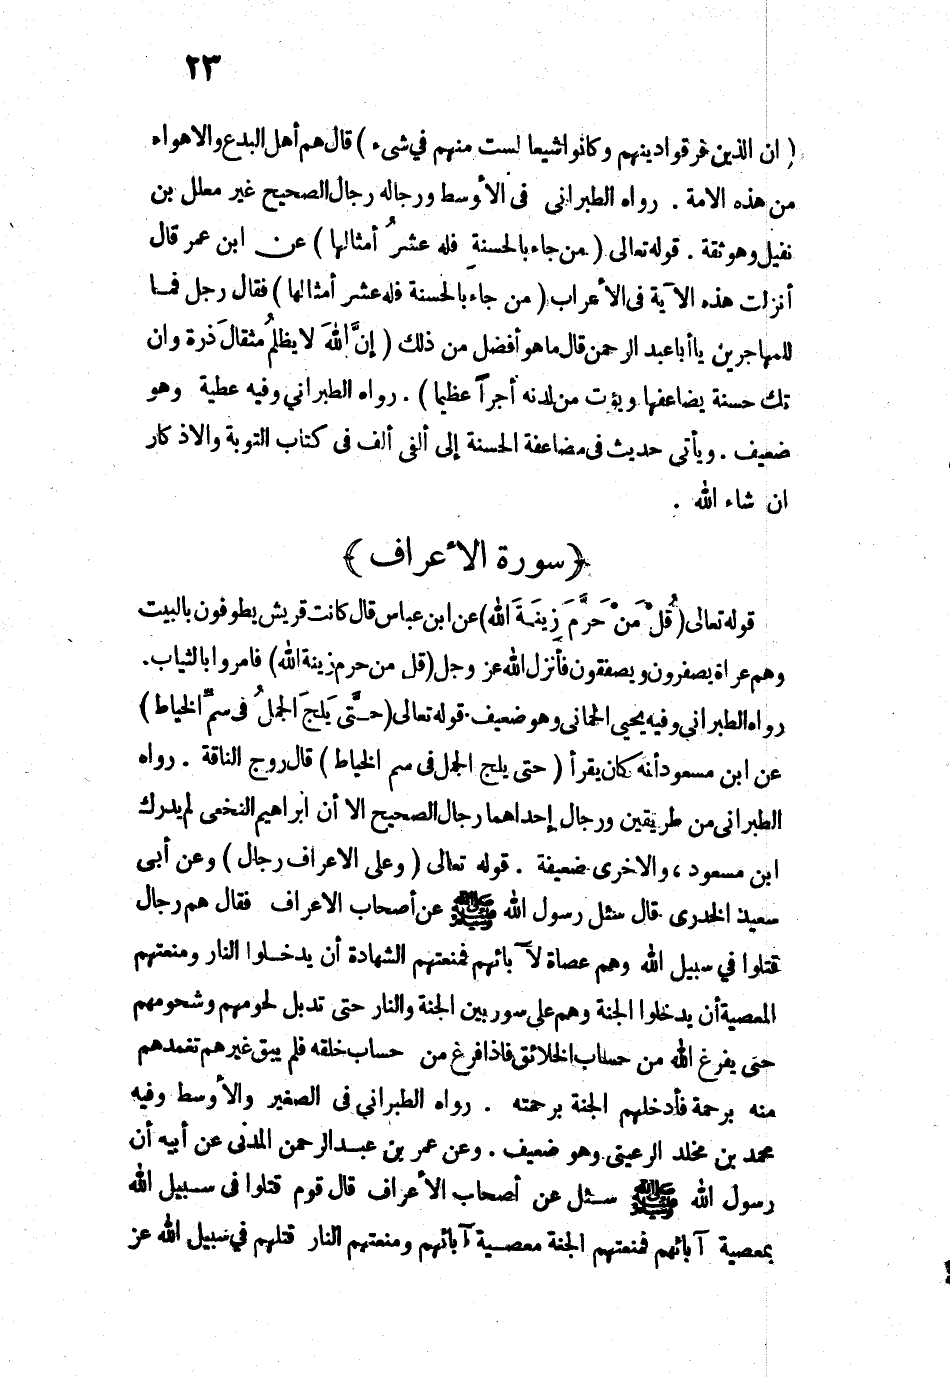 ٢٣
( ان الذين فرقوا دينهم وكانوا شيعا لست منهم في شيء ) قال هم أهل البدع والاهواء
من هذه الامة . رواه الطبراني في الأوسط ورجاله رجال الصحيح غير معلل بن
نفيل وهو ثقة . قوله تعالى ( من جاء بالحسنة فله عشرُ أمثالها ) عن ابن عمر قال
أنزلت هذه الآية في الأعراب ( من جاء بالحسنة فله عشر أمثالها ) فقال رجل فما
للمهاجرين يا أبا عبد الرحمن قال ما هو أفضل من ذلك ( إنَّ اللهَ لا يظلمُ مثقالَ ذرة وان
تك حسنة يضاعفها ويؤت من لدنه أجراً عظيما ) . رواه الطبراني وفيه عطية وهو
ضعيف . ويأتى حديث فى مضاعفة الحسنة إلى ألفى ألف فى كتاب التوبة والاذكار
ان شاء الله .
﴿ سورة الأعراف ﴾
قوله تعالى ( قُلْ مَنْ حَرَّمَ زِينَةَ الله ) عن ابن عباس قال كانت قريش يطوفون بالبيت
وهم عراة يصفرون ويصفقون فأنزل الله عز وجل ( قل من حرم زينة الله ) فامروا بالثياب.
رواه الطبراني وفيه يحيى الحمانى وهو ضعيف. قوله تعالى ( حتَّى يَلجَ الجملُ فى سمِّ الخياط )
عن ابن مسعود أنه كان يقرأ ( حتى يلج الجمل فى سم الخياط ) قال زوج الناقة . رواه
الطبرانى من طريقين ورجال إحداهما رجال الصحيح الا أن ابراهيم النخعى لم يدرك
ابن مسعود ، والاخرى ضعيفة . قوله تعالى ( وعلى الاعراف رجال ) وعن أبى
سعيد الخدرى قال سئل رسول الله ﷺ عن أصحاب الاعراف فقال هم رجال
قتلوا في سبيل الله وهم عصاة لآبائهم فمنعتهم الشهادة أن يدخلوا النار ومنعتهم
المعصية أن يدخلوا الجنة وهم على سور بين الجنة والنار حتى تذبل لحومهم وشحومهم
حتى يفرغ الله من حساب الخلائق فاذا فرغ من حساب خلقه فلم يبق غيرهم تغمدهم
منه برحمة فأدخلهم الجنة برحمته . رواه الطبراني فى الصغير والأوسط وفيه
محمد بن مخلد الرعينى وهو ضعيف . وعن عمر بن عبد الرحمن المدنى عن أبيه أن
رسول الله ﷺ سئل عن أصحاب الأعراف قال قوم قتلوا فى سبيل الله
بمعصية آبائهم فمنعتهم الجنة معصية آبائهم ومنعتهم النار قتلهم في سبيل الله عز